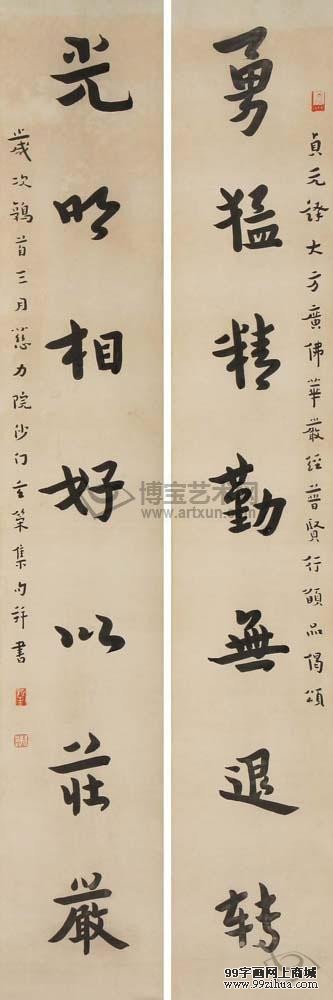 貞元譯大方廣佛華嚴經普賢行願品偈頌
勇猛精勤無退轉
光明相好以莊嚴
歲次鶉首三月慈力院沙门玄策集句并書
博宝艺术网
www.artxun.com
99字画网上商城
www.99zihua.com